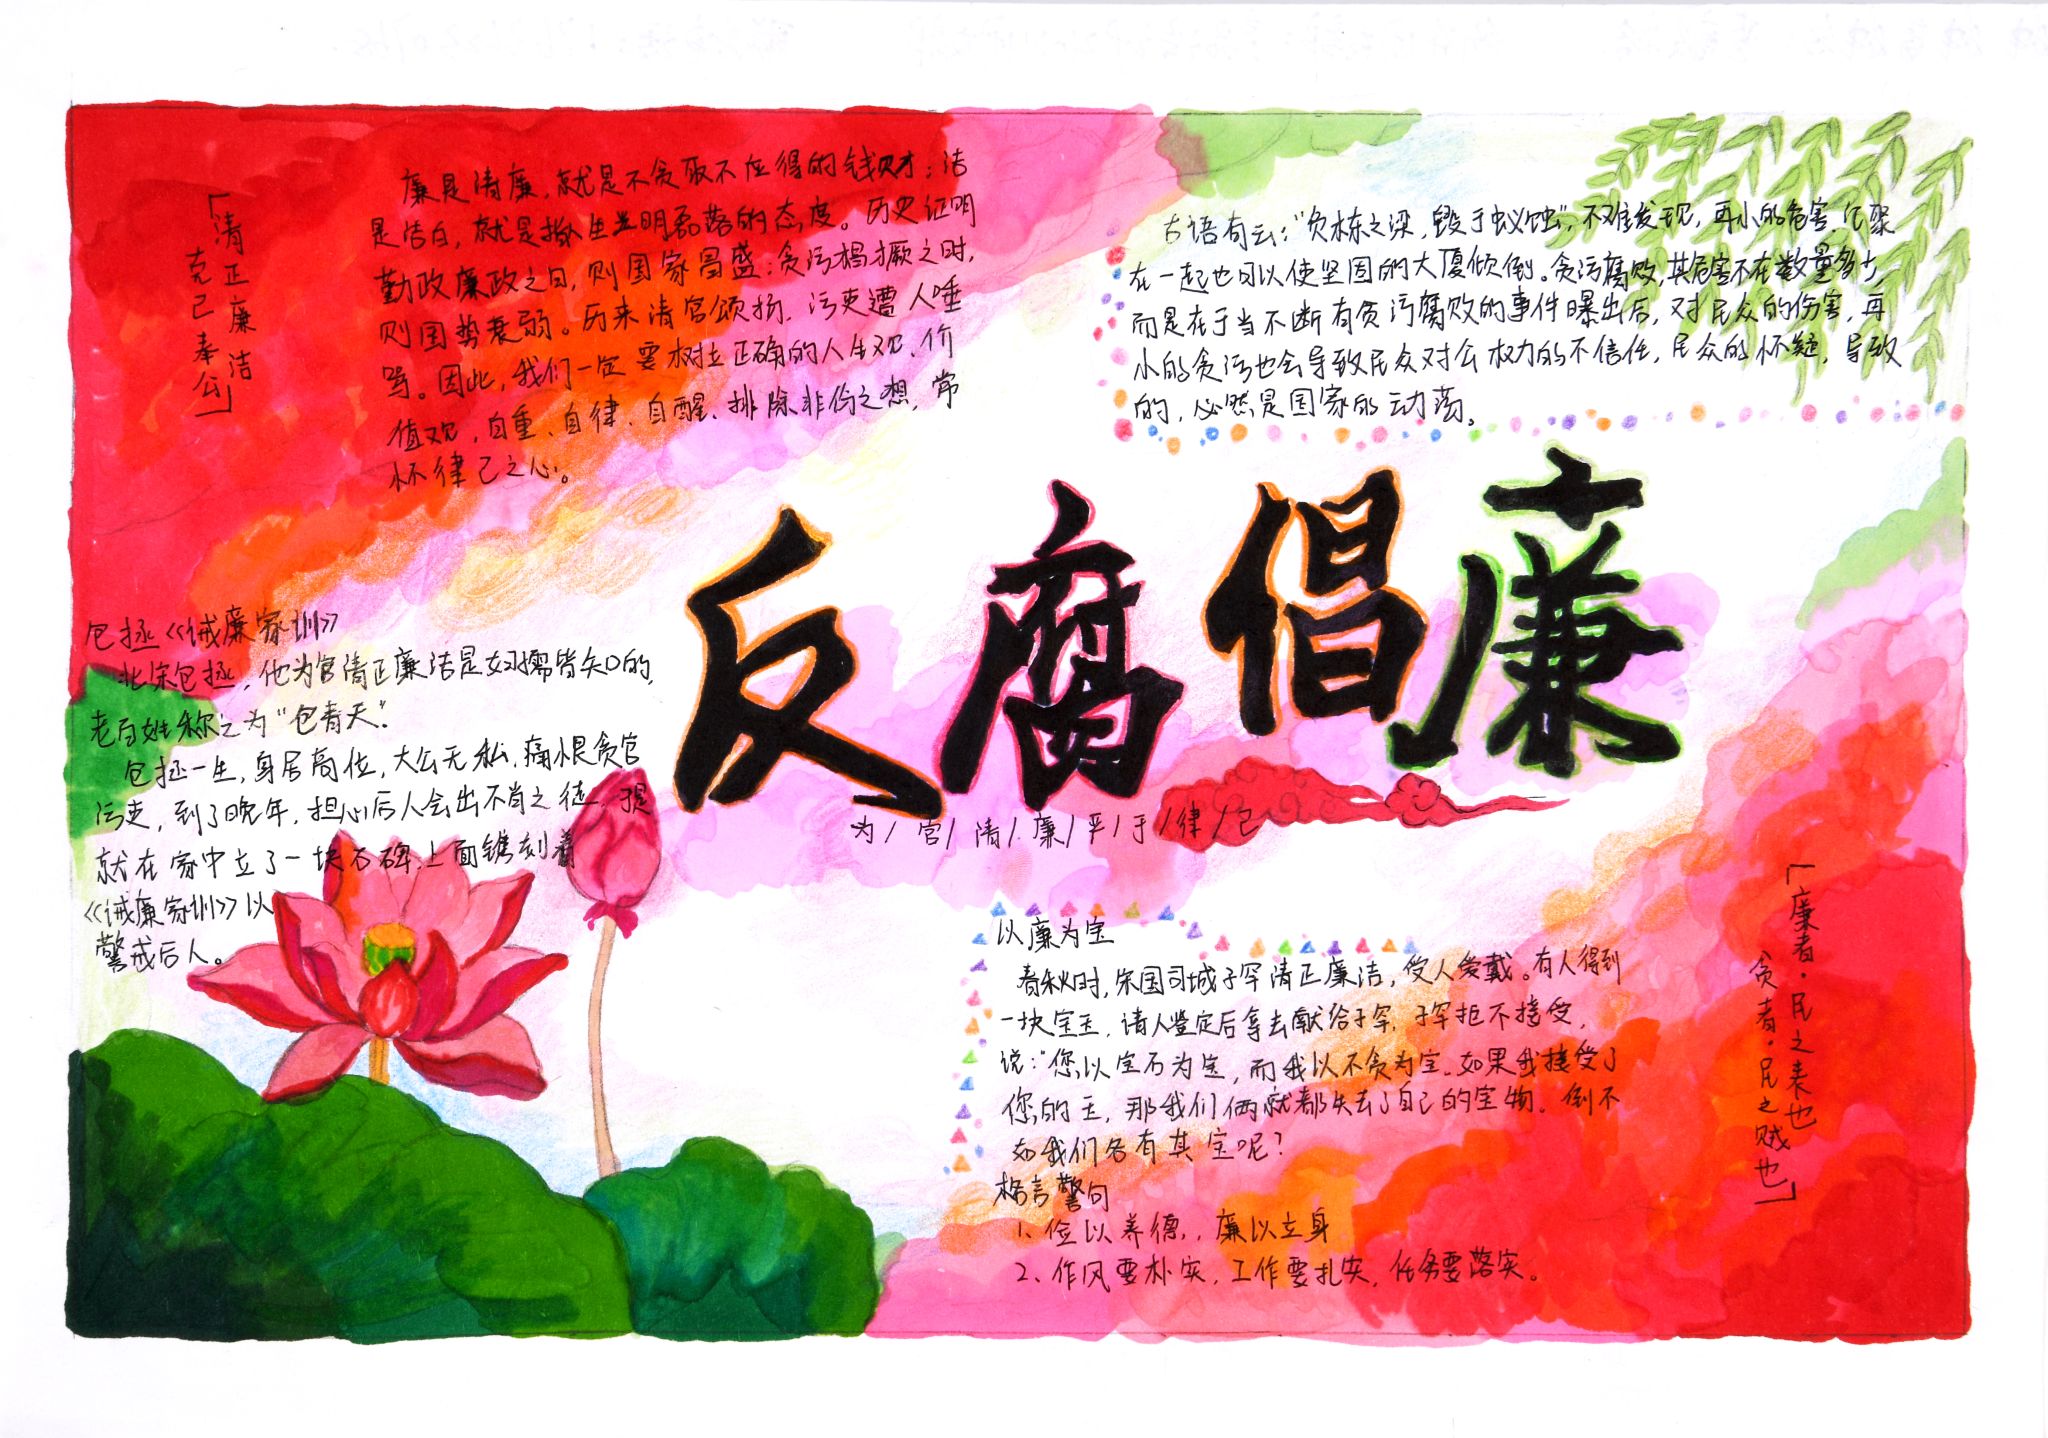 「清正廉洁
克己奉公」
廉是清廉,就是不贪取不应得的钱财;洁
是洁白,就是指人生光明磊落的态度。历史证明
勤政廉政之日,则国家昌盛;贪污猖獗之时,
则国势衰弱。历来清官颂扬,污吏遭人唾
骂。因此,我们一定要树立正确的人生观、价
值观,自重、自律、自醒、排除非份之想,常
怀律己之心。
古语有云:“负栋之梁,毁于蚁蚀”,不难发现,再小的危害,汇聚
在一起也可以使坚固的大厦倾倒。贪污腐败,其危害不在数量多少,
而是在于当不断有贪污腐败的事件曝出后,对民众的伤害,再
小的贪污也会导致民众对公权力的不信任,民众的怀疑,导致
的,必然是国家的动荡。
反腐倡廉
为/官/清/廉/平/于/律/己
包拯《诫廉家训》
北宋包拯,他为官清正廉洁是妇孺皆知的,
老百姓称之为“包青天”.
包拯一生,身居高位,大公无私,痛恨贪官
污吏,到了晚年,担心后人会出不肖之徒,提
就在家中立了一块石碑,上面镌刻着
《诫廉家训》以
警戒后人。
以廉为宝
春秋时,宋国司城子罕清正廉洁,受人爱戴。有人得到
一块宝玉,请人鉴定后拿去献给子罕,子罕拒不接受,
说:“您以宝石为宝,而我以不贪为宝.如果我接受了
您的玉,那我们俩就都失去了自己的宝物。倒不
如我们各有其宝呢?
格言警句
1、俭以养德,廉以立身
2、作风要朴实,工作要扎实,任务要落实。
「廉者·民之表也
贪者·民之贼也」